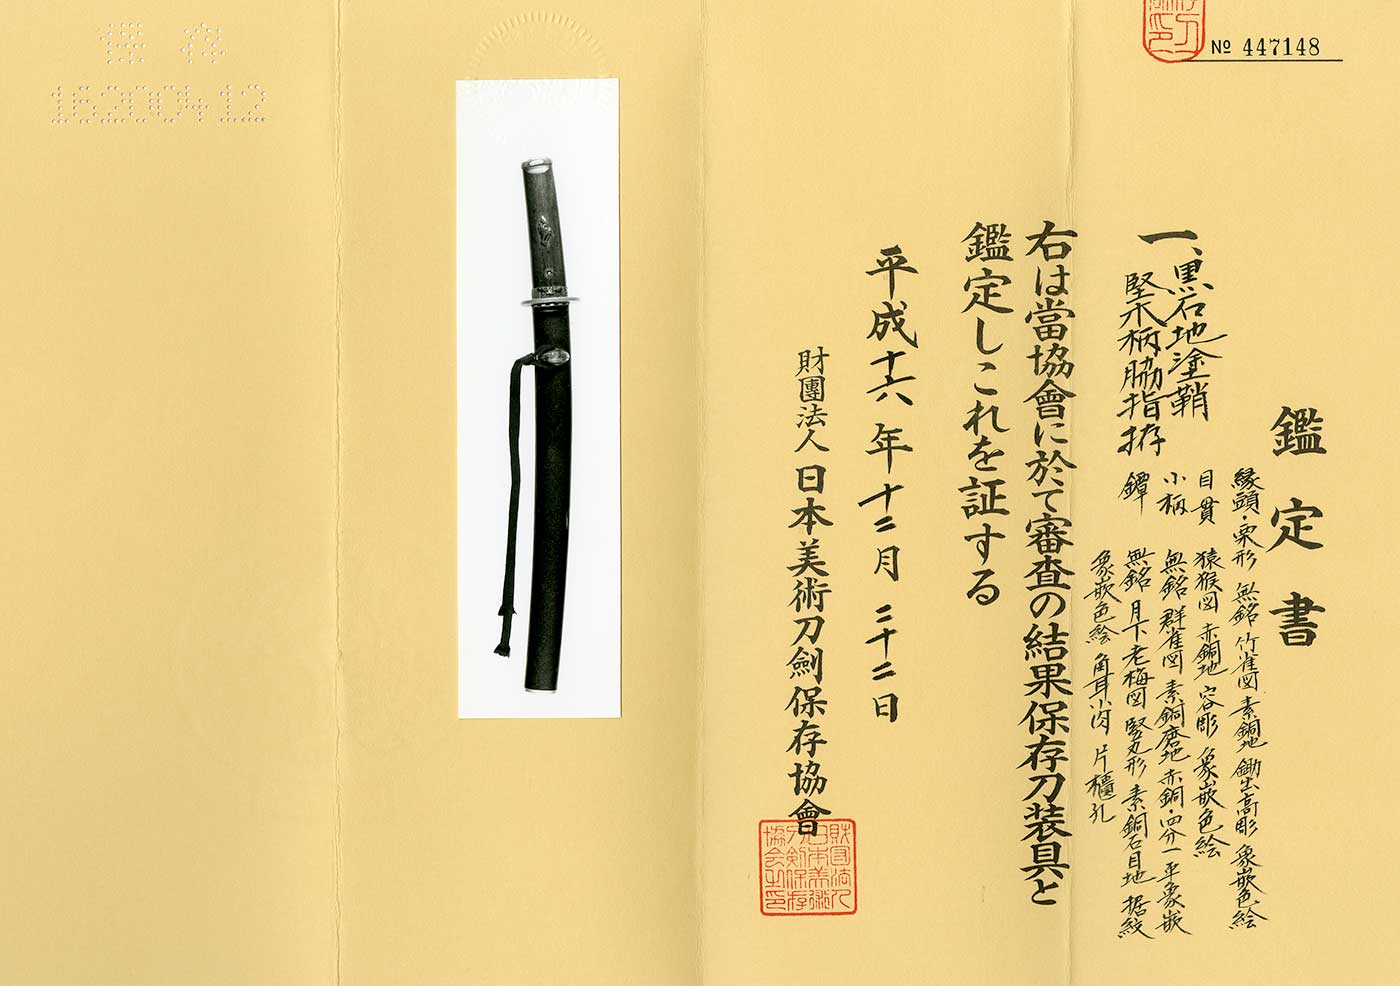 No 447148
鑑定書
一、黒石地塗鞘
堅木柄脇指拵
縁頭・栗形 無銘 竹雀図 素銅地 鋤出高彫 象嵌色絵
目貫 猿猴図 赤銅地 容彫 象嵌色絵
小柄 無銘 群雀図 素銅磨地 赤銅・四分一平象嵌
鐔 無銘 月下老梅図 竪丸形 素銅石目地 据紋
象嵌色絵 角耳小肉 片櫃孔
右は當協會に於て審査の結果保存刀装具と
鑑定しこれを証する
平成十六年十二月二十二日
財團法人日本美術刀劍保存協會
財団法人
日本美術
刀剣保存
協会之印
保存
16200412